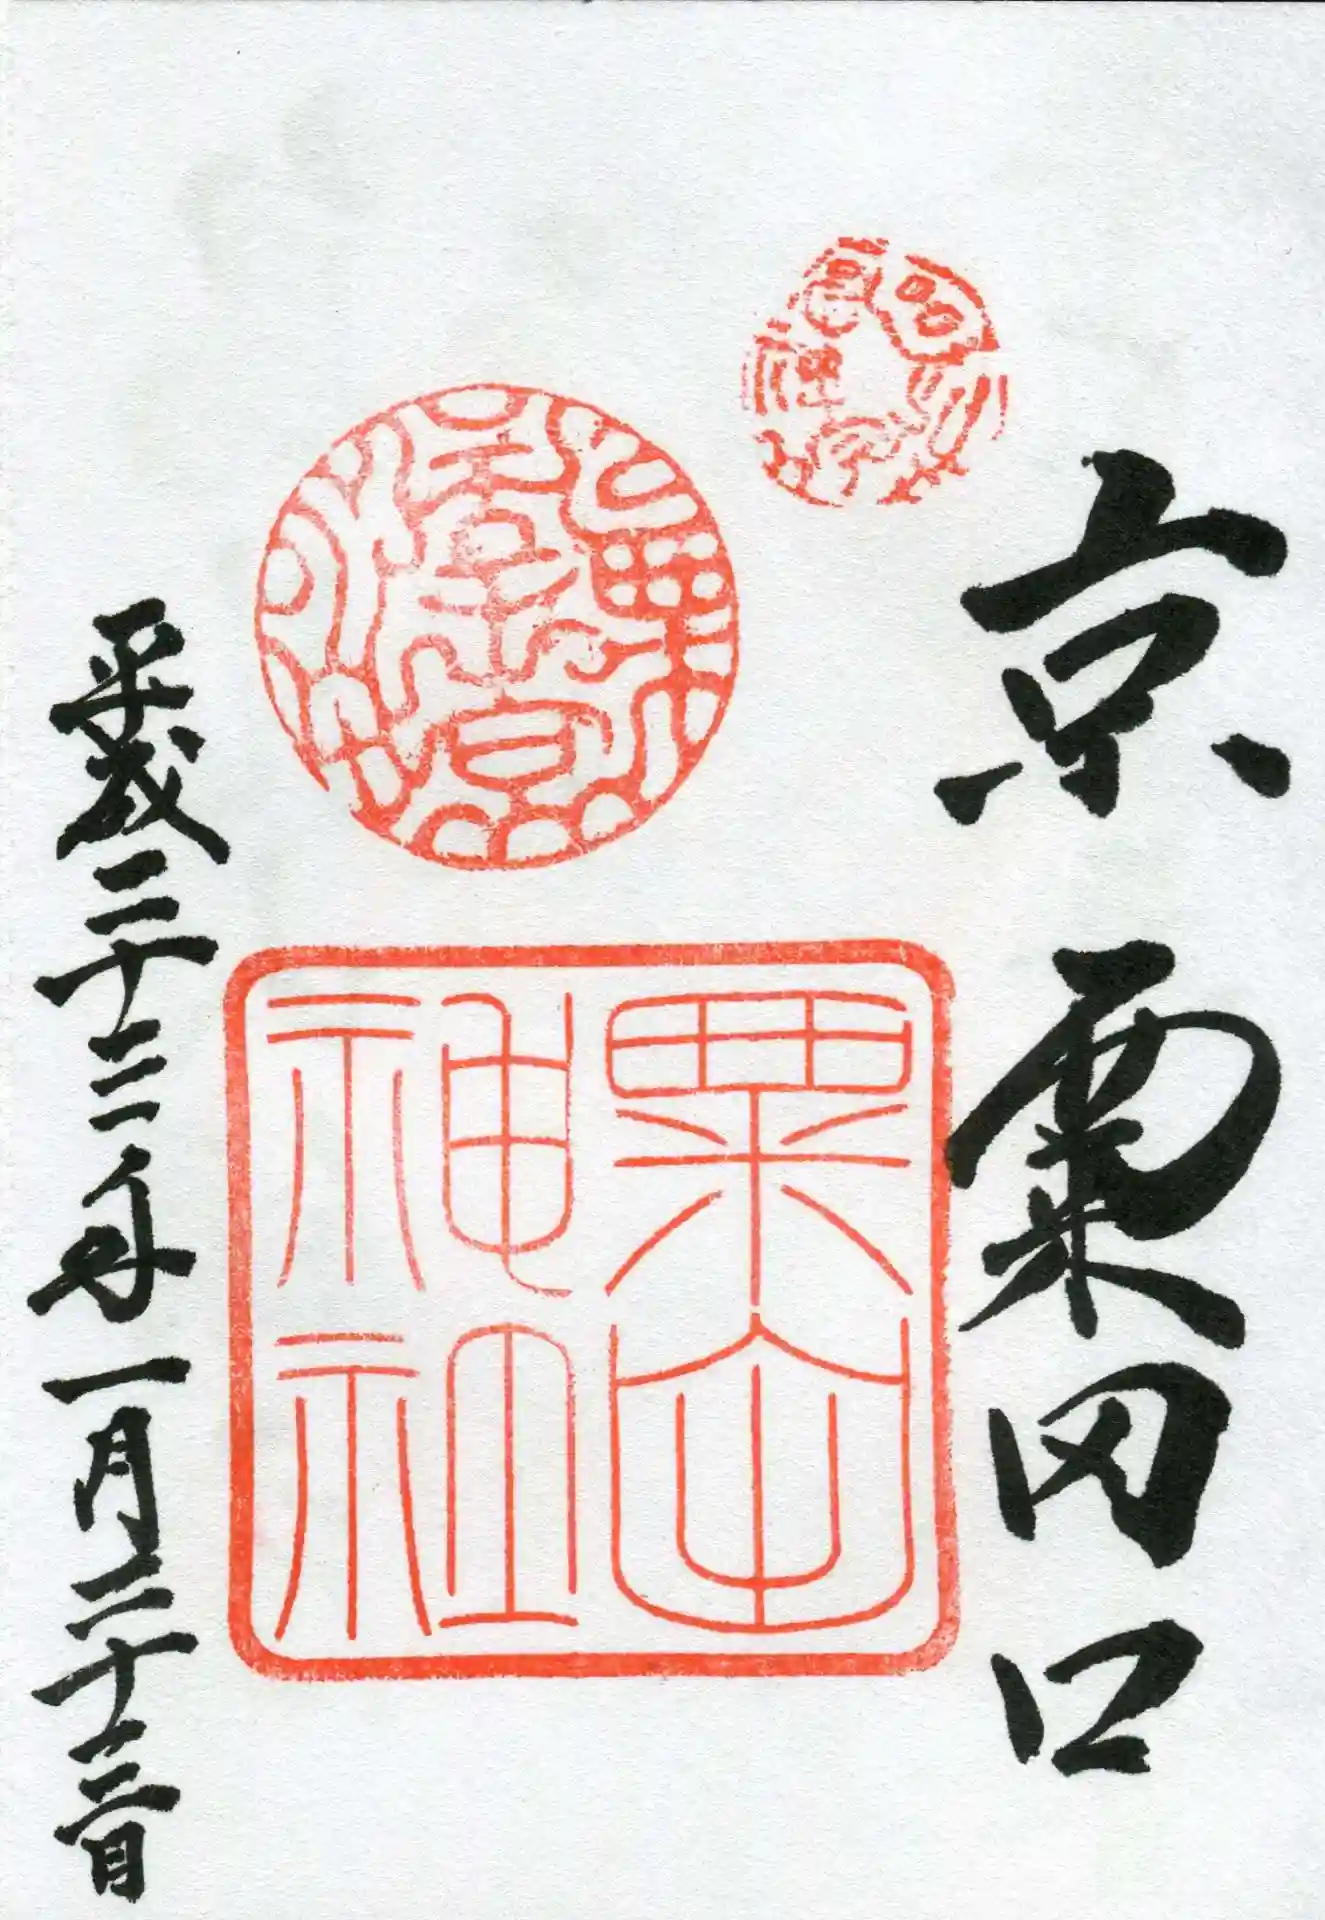 京 粟田口
粟田
神社
平成二十三年一月二十三日